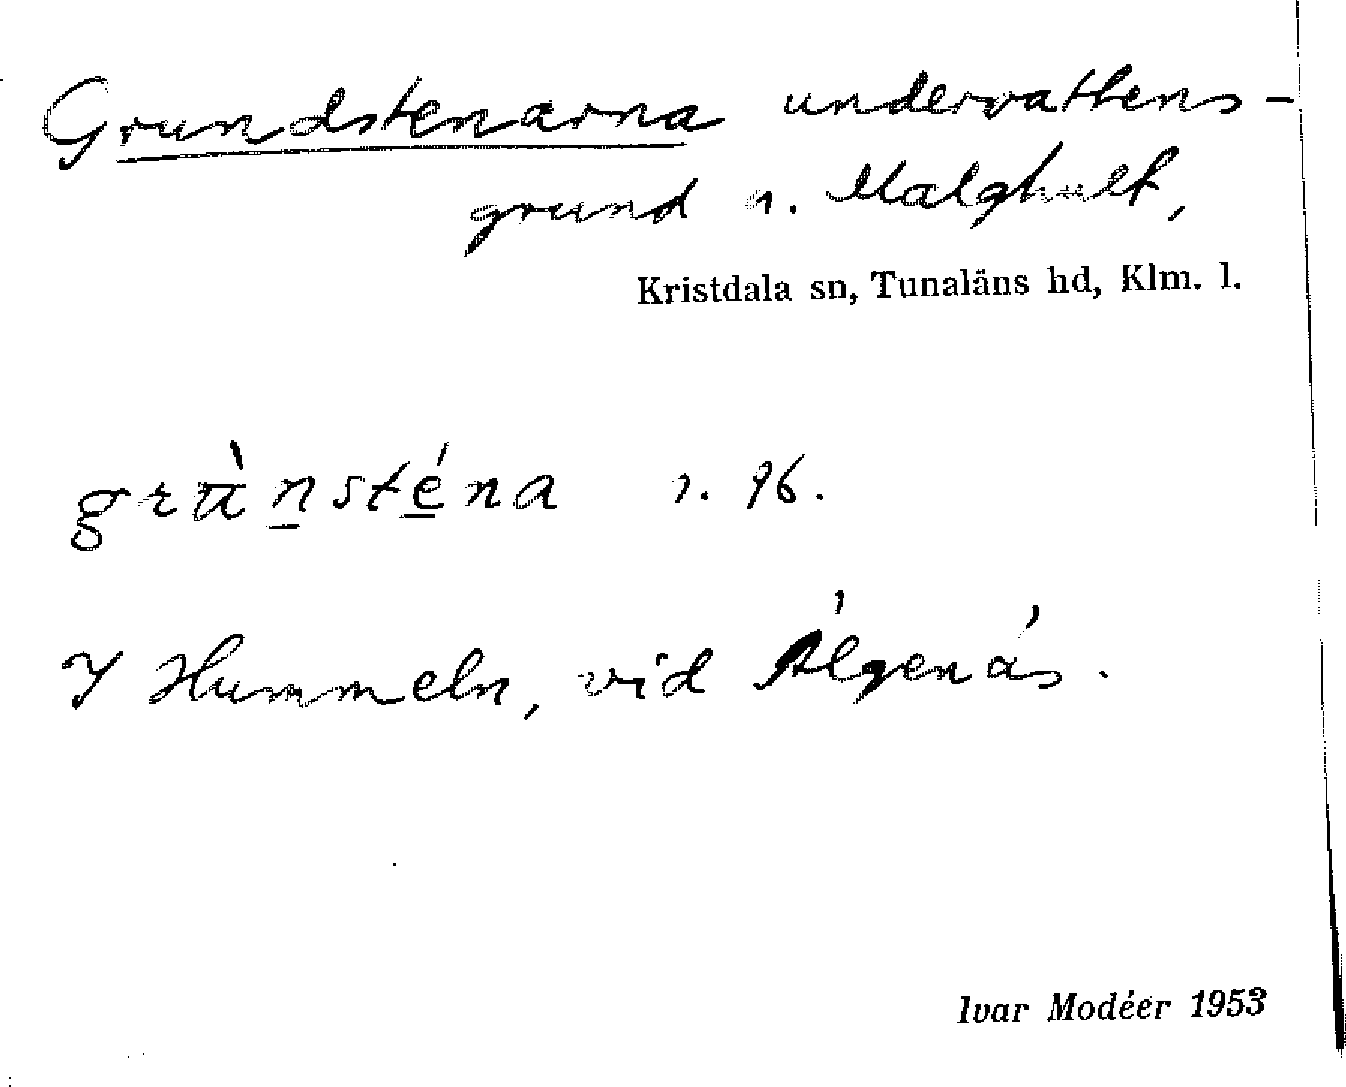 Grundstenarna undervattens-
grund n. Malghult,
Kristdala sn, Tunaläns hd, Klm. l.
grùnsténa 1. 96.
I Hummeln, vid Älgenäs.
Ivar Modéer 1953